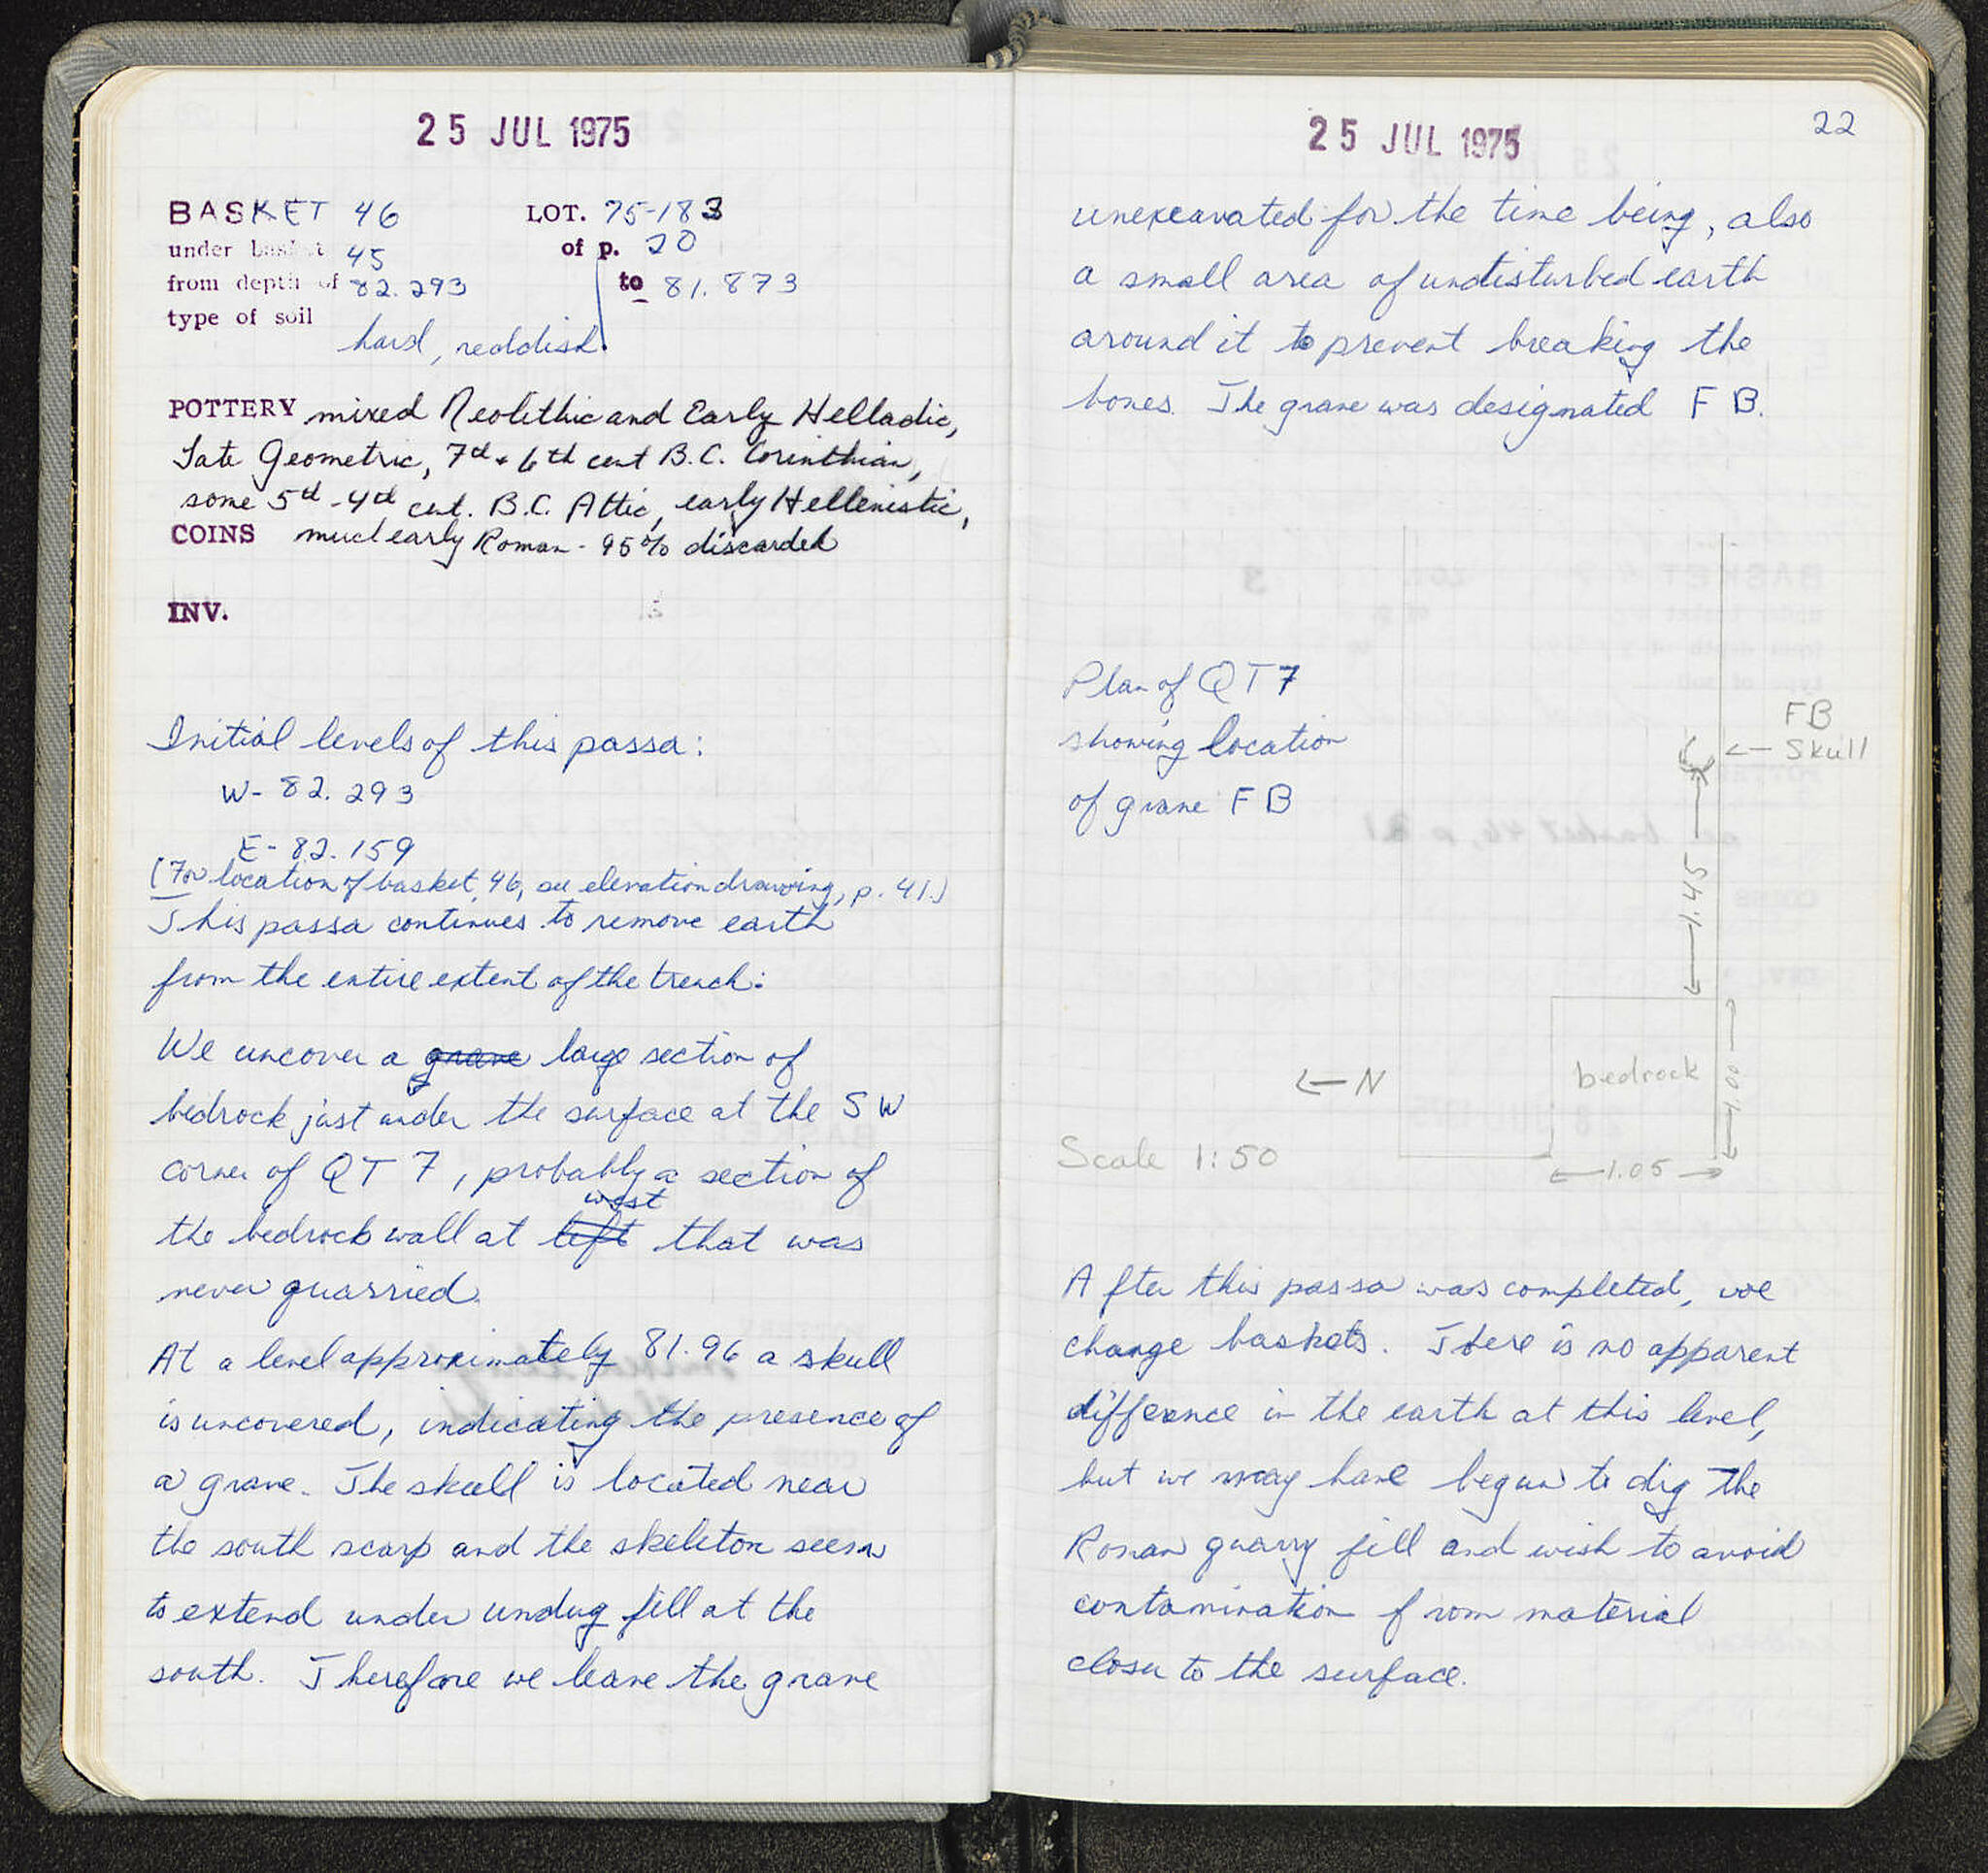 25 JUL 1975
BASKET 46 LOT. 75-183
under basket 45 of p. 20
from depth of 82.293 to 81.873
type of soil
hard, reddish.
POTTERY mixed Neolithic and Early Helladic,
Late Geometric, 7th + 6th cent B.C. Corinthian,
some 5th-4th cent. B.C. Attic, early Hellenistic,
COINS much early Roman - 95% discarded
INV.
Initial levels of this passa:
W- 82.293
E- 82.159
(For location of basket 46, see elevation drawing, p. 41.)
This passa continues to remove earth
from the entire extent of the trench:
We uncover a grave large section of
bedrock just under the surface at the SW
corner of QT 7, probably a section of
west
the bedrock wall at left that was
never quarried.
At a level approximately 81.96 a skull
is uncovered, indicating the presence of
a grave. The skull is located near
the south scarp and the skeleton seems
to extend under undug fill at the
south. Therefore we leave the grave
25 JUL 1975
22
unexcavated for the time being, also
a small area of undisturbed earth
around it to prevent breaking the
bones. The grave was designated FB.
Plan of QT 7
showing location
of grave FB
FB
← Skull
1.45
← N
bedrock
1.00
Scale 1:50
←1.05→
After this passa was completed, we
change baskets. There is no apparent
difference in the earth at this level,
but we may have begun to dig the
Roman quarry fill and wish to avoid
contamination from material
closer to the surface.